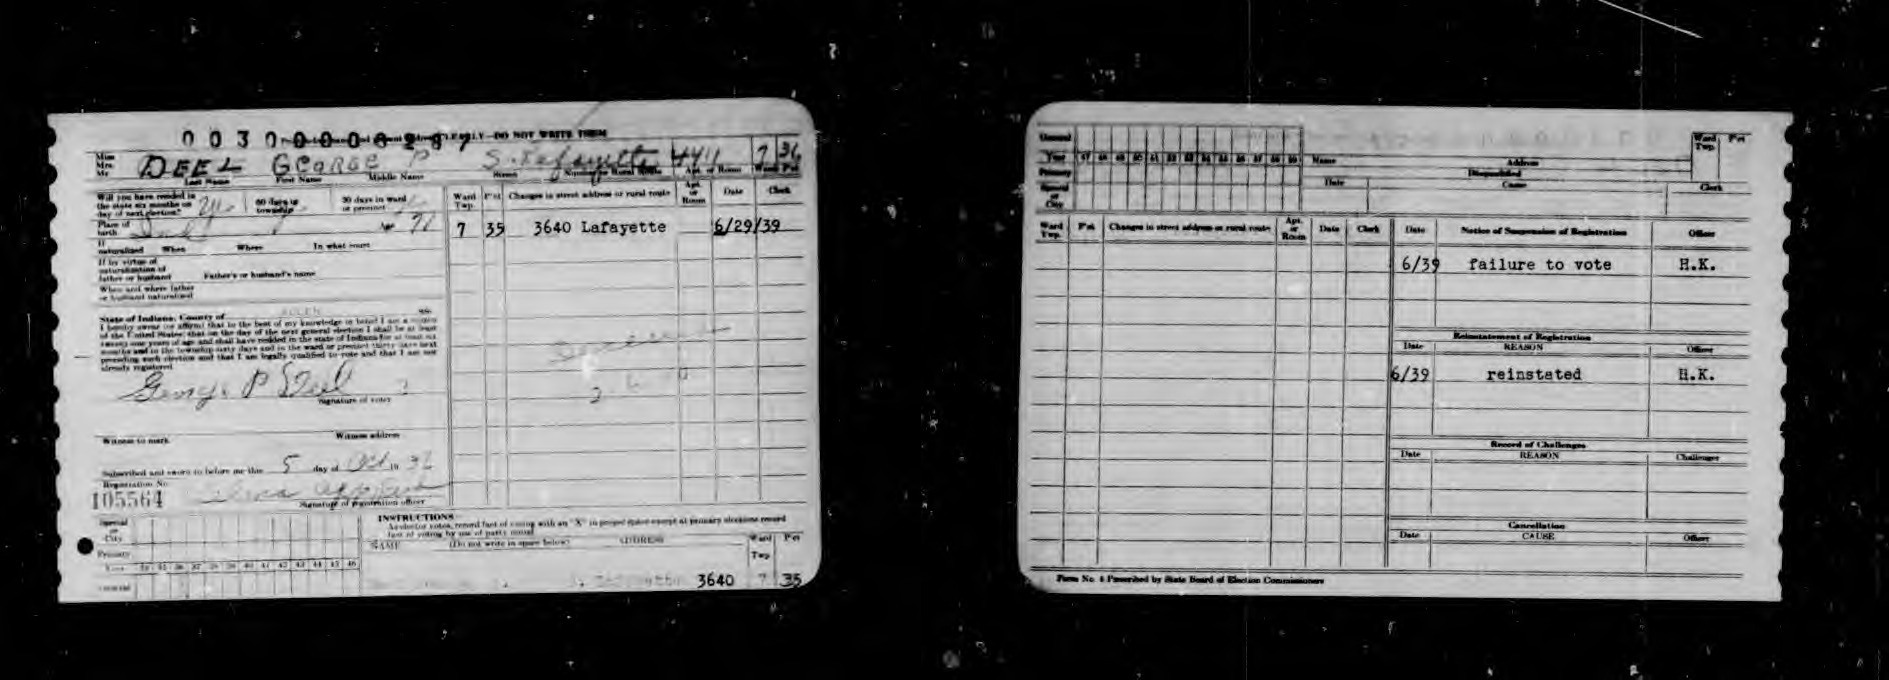 LEGIBLY—DO NOT WRITE THEM
Miss
Mrs.
Mr. DEEL GEORGE P S. Lafayette 4411 7 36
Last Name First Name Middle Name Street Number or Rural Route Apt. or Room Ward Pct
Will you have resided in
the state six months on
day of next election? 60 days in
township 30 days in ward
or precinct
Ward
Twp. P'ct Changes in street address or rural route Apt.
or
Room Date Clerk
Place of
birth Ind Age 71
7 35 3640 Lafayette 6/29/39
If
naturalized When Where In what court
If by virtue of
naturalization of
father or husband Father's or husband's name
When and where father
or husband naturalized
State of Indiana, County of ss:
I hereby swear (or affirm) that to the best of my knowledge or belief I am a citizen
of the United States; that on the day of the next general election I shall be at least
twenty-one years of age and shall have resided in the state of Indiana for at least six
months and in the township sixty days and in the ward or precinct thirty days next
preceding such election and that I am legally qualified to vote and that I am not
already registered
George P Deel
Signature of voter
Witness to mark Witness address
Subscribed and sworn to before me this 5 day of Oct 19 36
Registration No.
105564
Signature of registration officer
Special
or
City
Primary
Year 34 35 36 37 38 39 40 41 42 43 44 45 46
INSTRUCTIONS
As elector votes, record fact of voting with an "X" in proper space except at primary elections record
fact of voting by use of party initial
NAME (Do not write in space below) ADDRESS Ward
Twp. P'ct
3640 7 35
General
Year 47 48 49 50 51 52 53 54 55 56 57 58 59
Primary
Special
or
City
Name Address Ward
Twp. P'ct
Disqualified
Date Cause Clerk
Ward
Twp. P'ct Changes in street address or rural route Apt.
or
Room Date Clerk Date Notice of Suspension of Registration Officer
6/39 failure to vote H.K.
Reinstatement of Registration
Date REASON Officer
6/39 reinstated H.K.
Record of Challenges
Date REASON Challenger
Cancellation
Date CAUSE Officer
Form No. 8 Prescribed by State Board of Election Commissioners